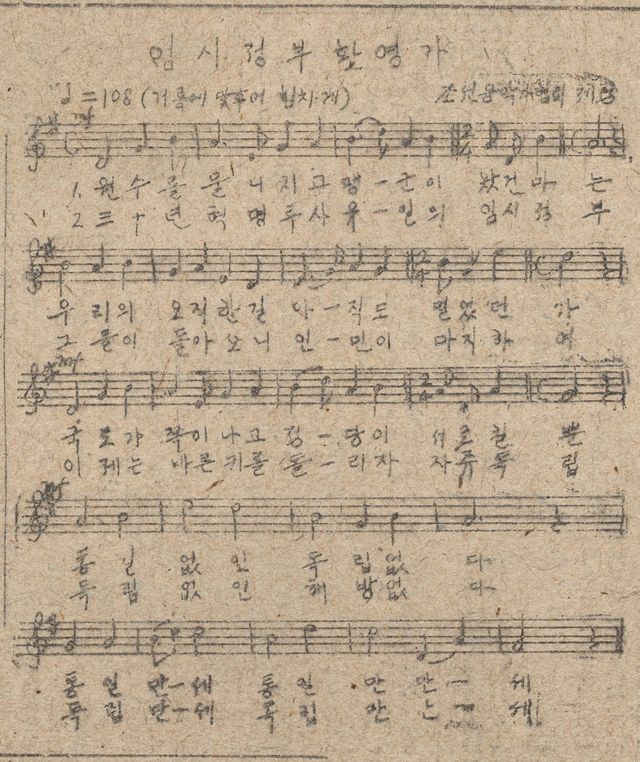 임시정부환영가
♩=108 (거룩에 맞추어 힘차게)
조선음악가협회 제공
1. 원수를 물니치고 맹-군이 왔건마는
2. 三十년 혁명투사 유-일의 임시정부
우리의 오직한길 아-직도 멀었던가
그들이 돌아오니 인-민이 마지하여
국토가 작이나고 정-당이 서로칠뿐
이제는 바른키를 돌-리자 자주독립
통일 없인 독립없다
독립 없인 해방없다
통일 만-세 통일 만만-세
독립 만-세 독립 만 세